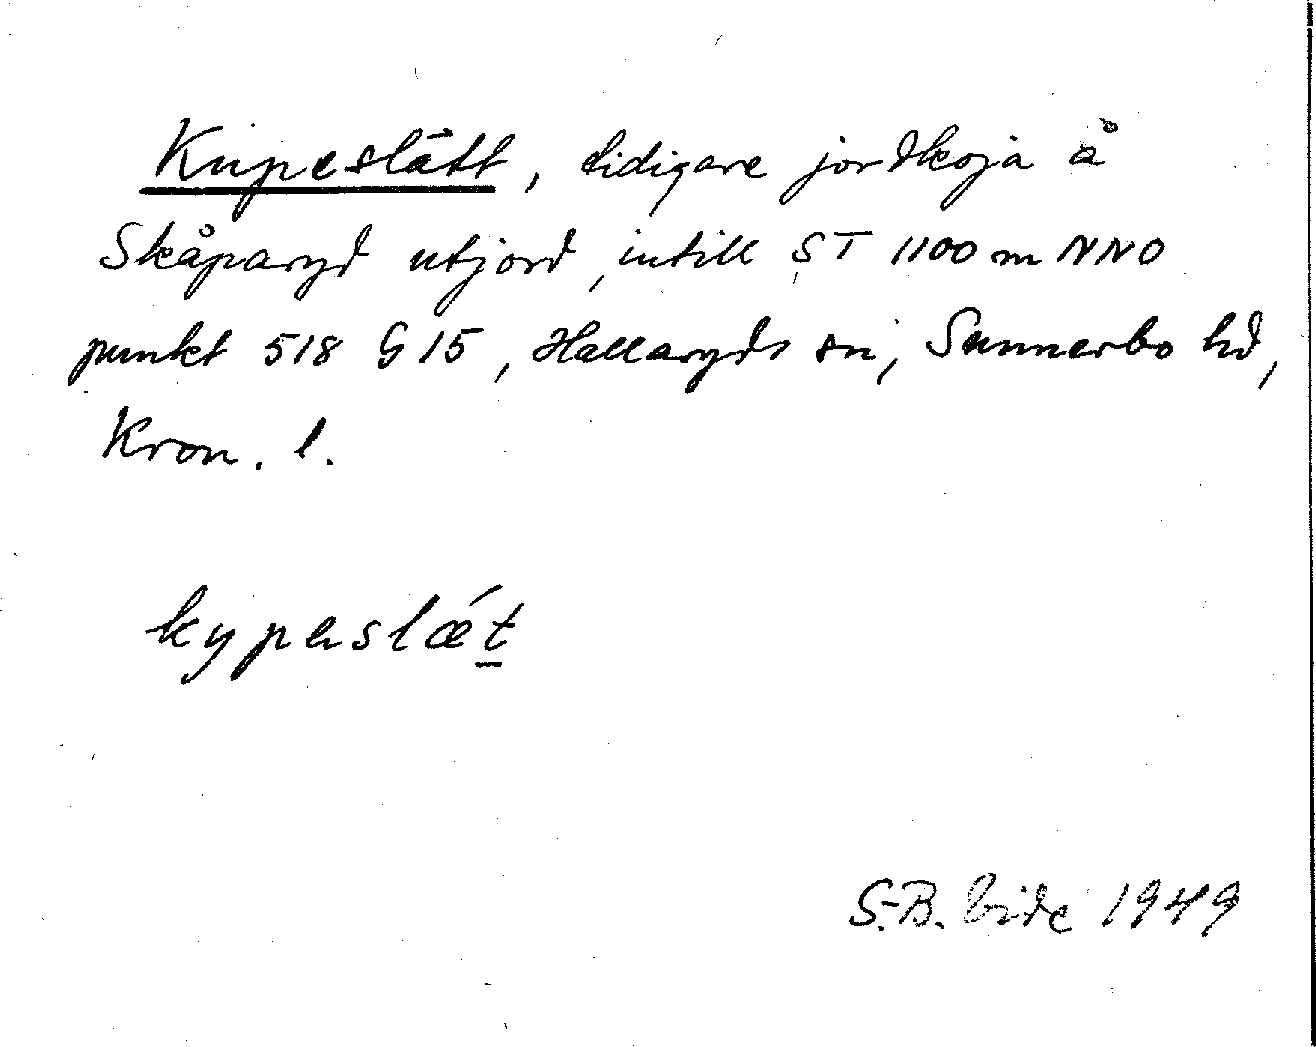 Kupeslätt, tidigare jordkoja å
Skåparyd utjord, intill ST 1100 m NNO
punkt 518 G 15, Hallaryds sn, Sunnerbo hd,
Kron. l.
kypəslǽt
S.-B. 1949